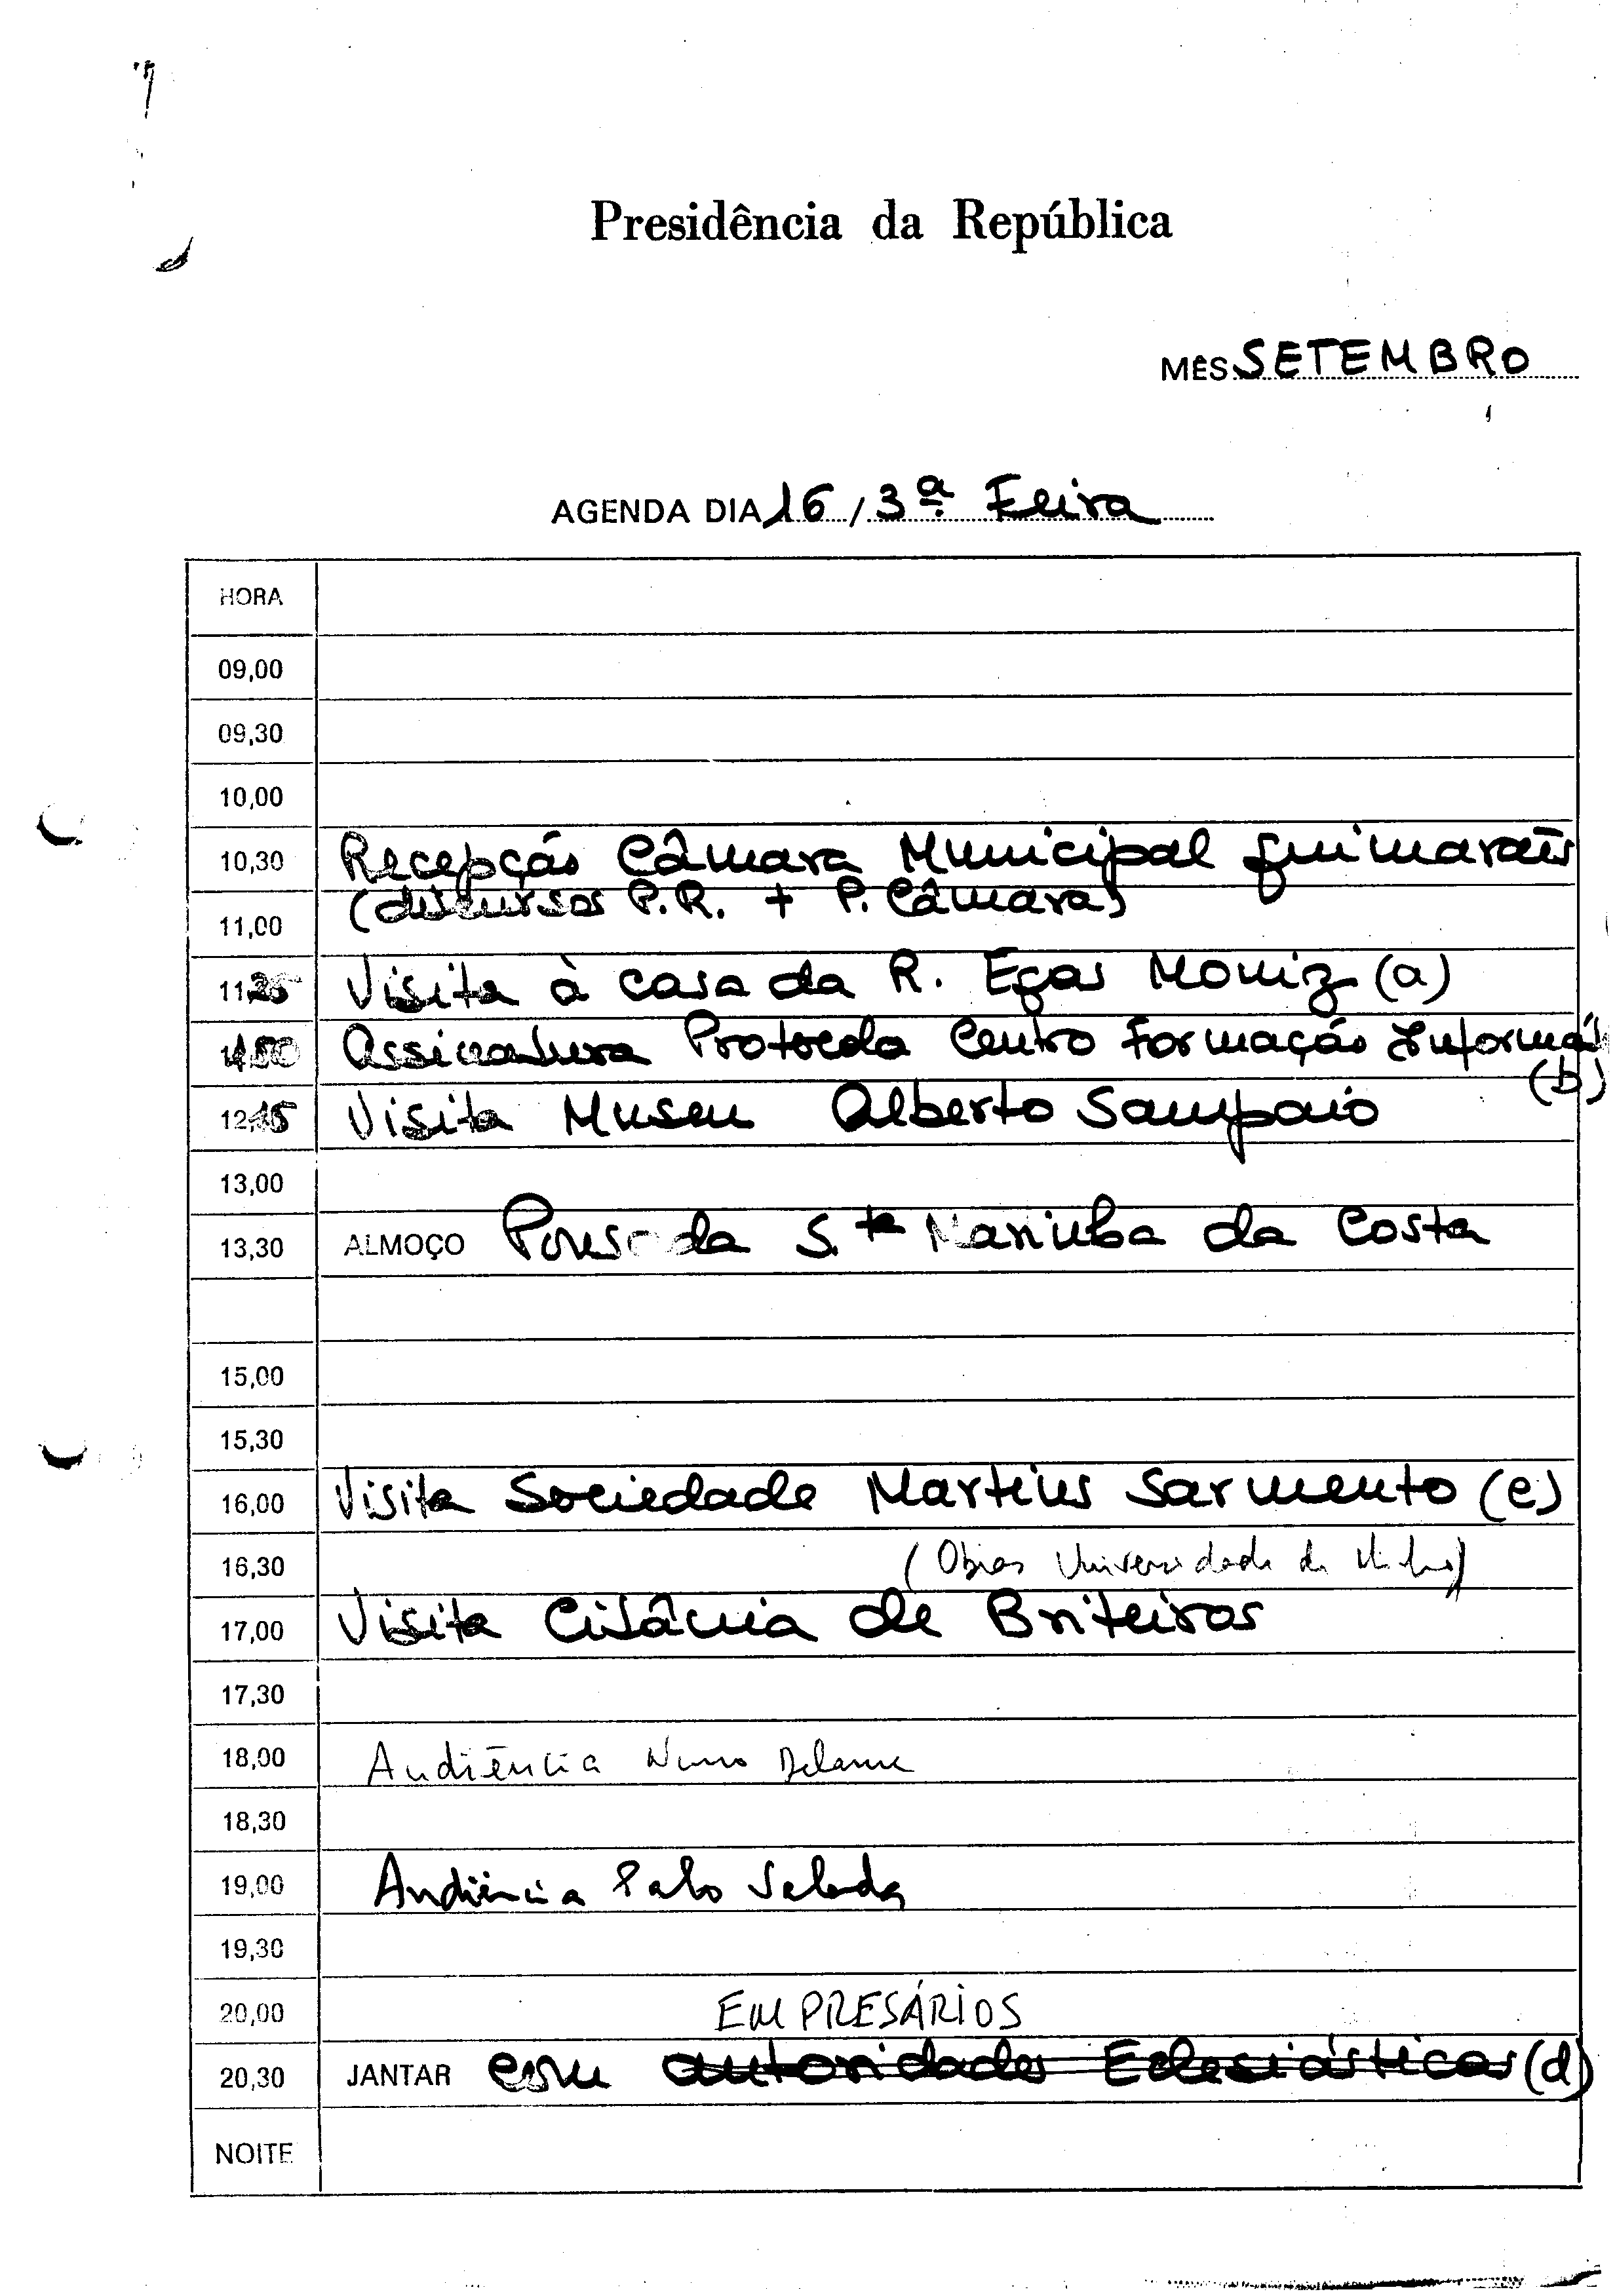 Presidência da República
MÊS SETEMBRO
AGENDA DIA 16 / 3ª Feira
HORA
09,00
09,30
10,00
10,30 Recepção Câmara Municipal Guimarães
(discursos P.R. + P. Câmara)
11,00
11,25 Visita à casa da R. Egas Moniz (a)
11,50 Assinatura Protocolo Centro Formação Informá
(b)
12,15 Visita Museu Alberto Sampaio
13,00
13,30 ALMOÇO Pousada S.ta Marinha da Costa
15,00
15,30
16,00 Visita Sociedade Martins Sarmento (c)
16,30 (Obras Universidade do Minho)
17,00 Visita Citânia de Briteiros
17,30
18,00 Audiência Nuno
18,30
19,00 Audiência
19,30
20,00 EMPRESÁRIOS
20,30 JANTAR com autoridades Eclesiásticas (d)
NOITE